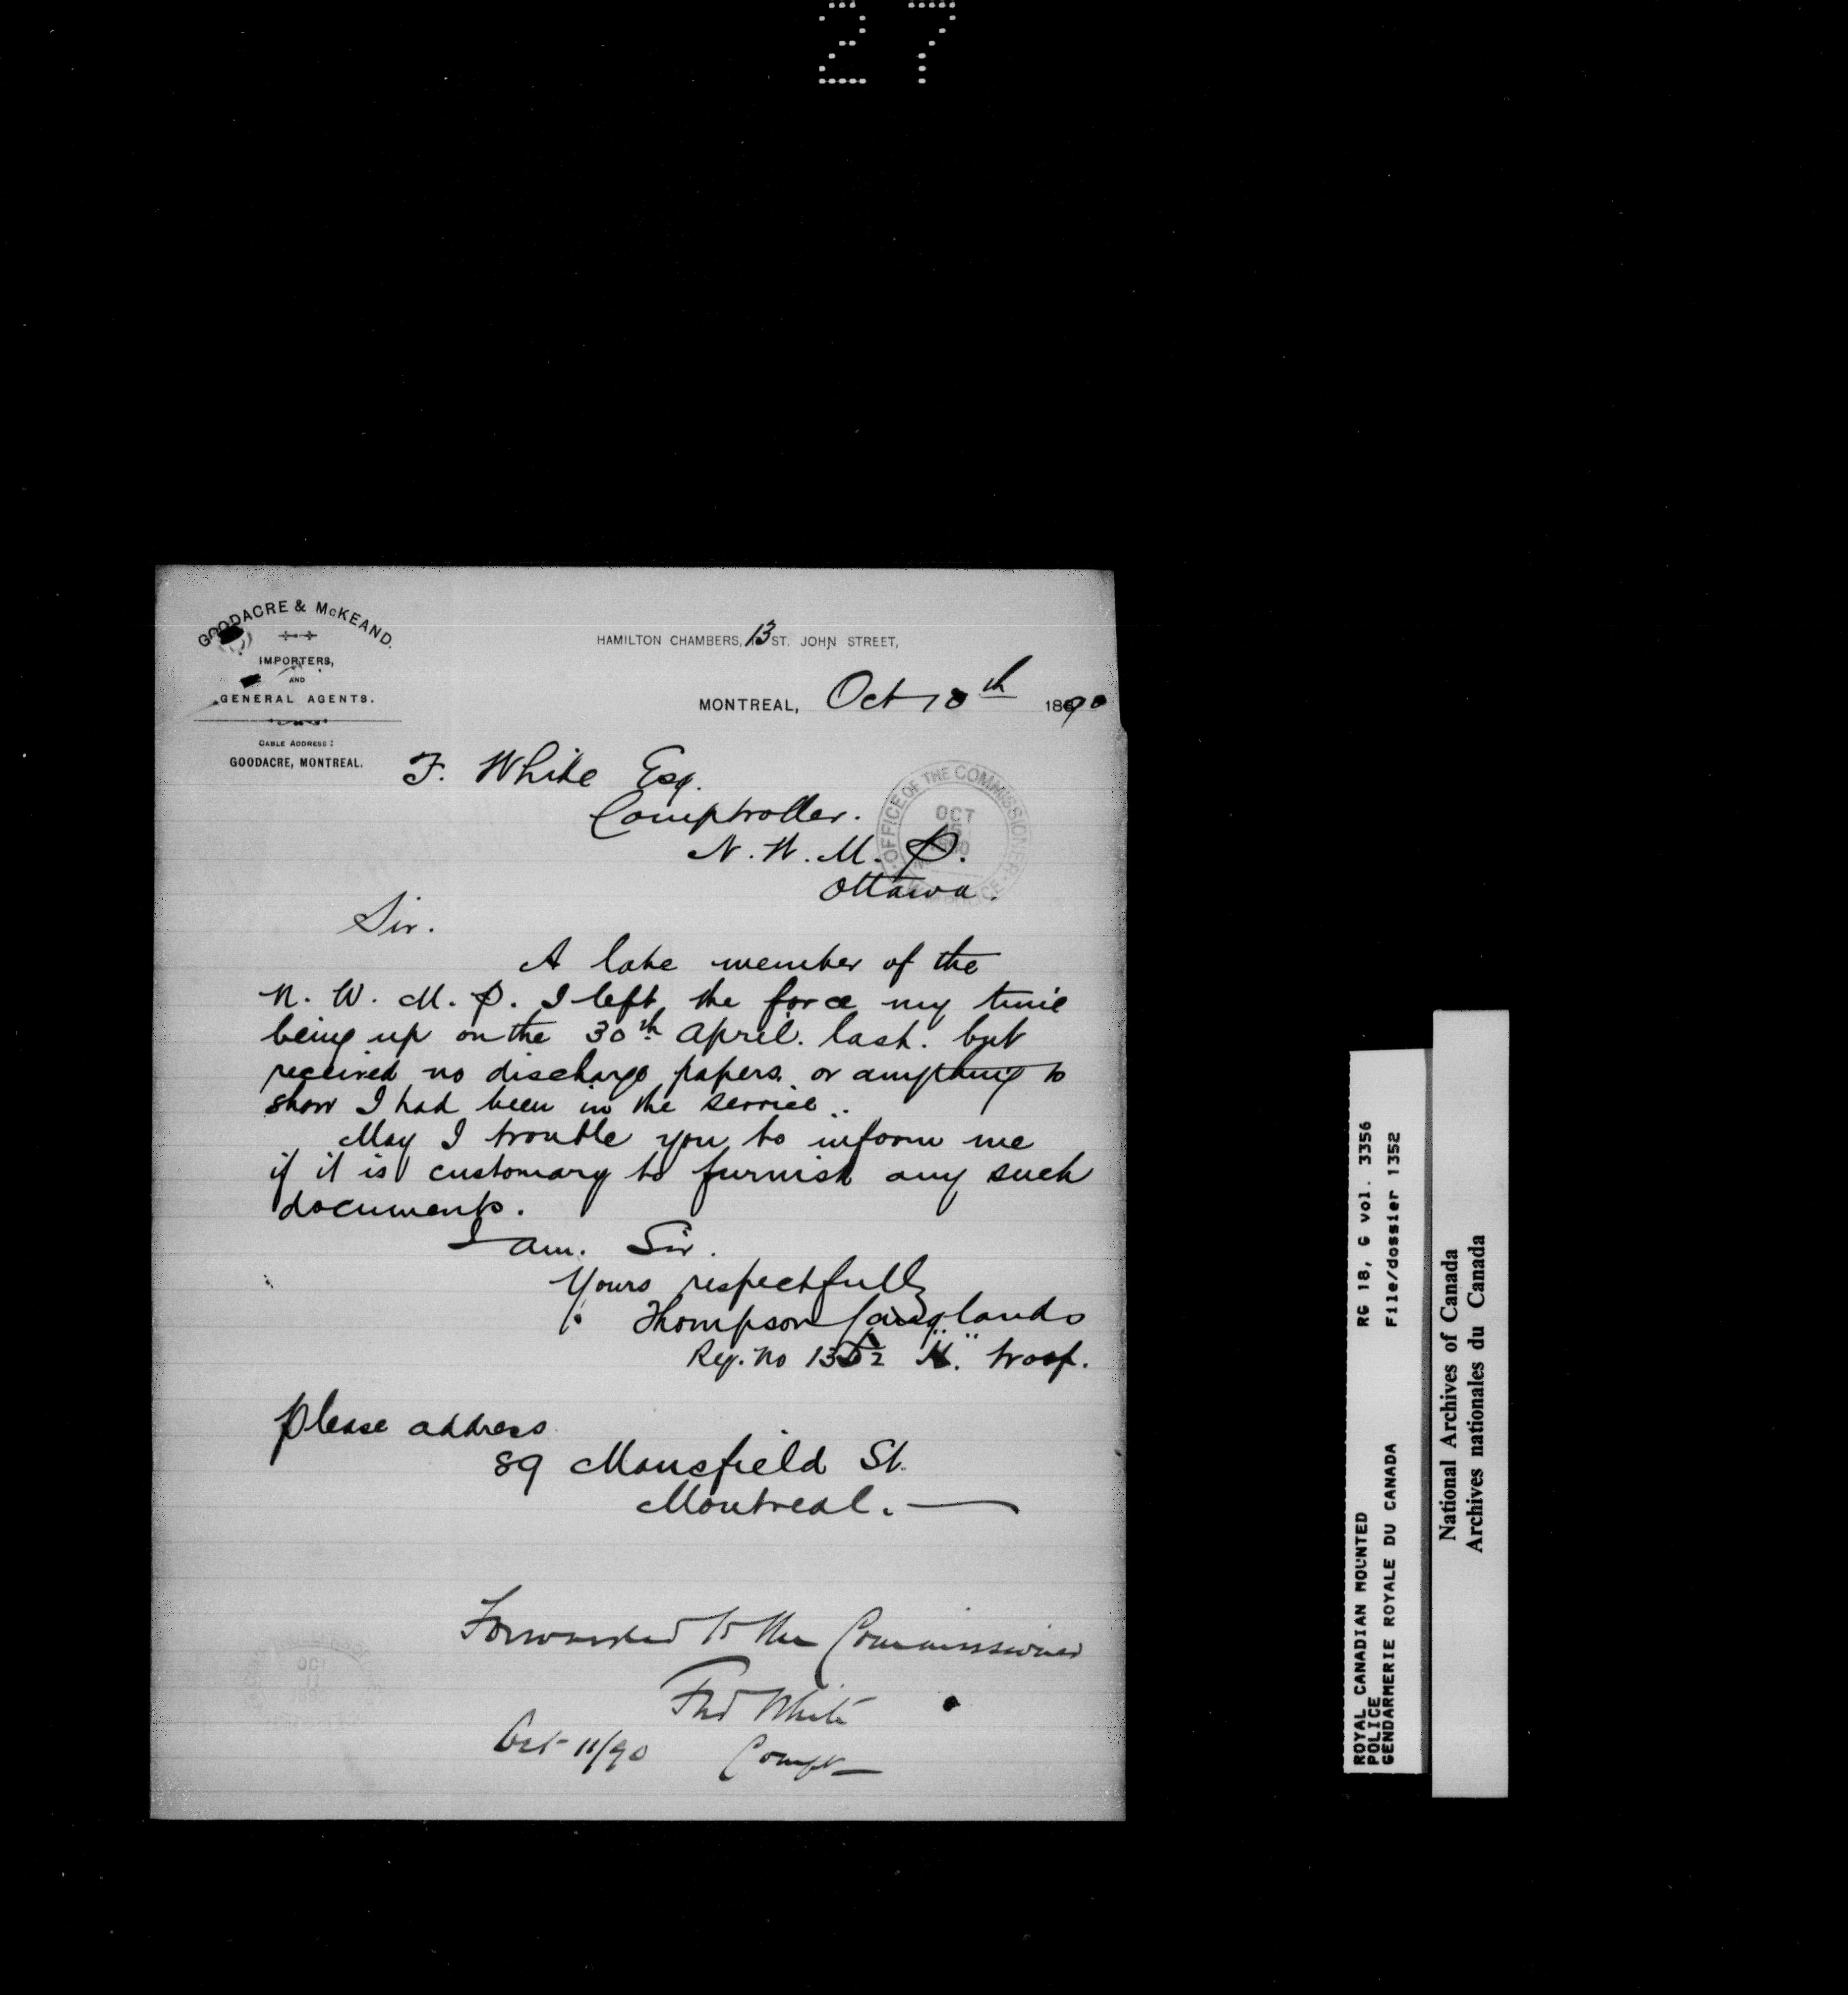 27
GOODACRE & McKEAND.
IMPORTERS,
AND
GENERAL AGENTS.
CABLE ADDRESS:
GOODACRE, MONTREAL.
HAMILTON CHAMBERS, 13 ST. JOHN STREET,
MONTREAL, Oct 10th 1890
F. White Esq.
Comptroller.
N. W. M. P.
Ottawa.
OFFICE OF THE COMMISSIONER
OCT
1890
POLICE
Sir.
A late member of the
N. W. M. P. I left the force my time
being up on the 30th April. last. but
received no discharge papers. or anything to
show I had been in the service..
May I trouble you to inform me
if it is customary to furnish any such
documents.
I am. Sir.
Yours respectfully
Thompson Langlands
Reg. no 1352 "K." troop.
please address
89 Mansfield St.
Montreal.
Forwarded to the Commissioner
Fred White
Oct 11/90 Compt
ROYAL CANADIAN MOUNTED RG 18, G vol. 3356
POLICE
GENDARMERIE ROYALE DU CANADA File/dossier 1352
National Archives of Canada
Archives nationales du Canada